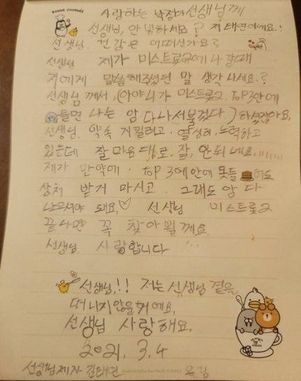 사랑하는 박정아 선생님께
선생님, 안녕하세요? 저 태연이에요!
선생님 건강은 어떠신가요?
선생님 제가 미스트롯2에 나갈때
저에게 말씀해주셨던 말 생각나세요?
선생님께서, (아야! 니가 미스트롯2. TOP3안에
들면 나는 암 다 나서불겄다) 하셨잖아요.
선생님. 약속 지킬려고. 열심히 노력하고
있는데 잘 마음대로, 잘, 안되네요.
제가 만약에. TOP3에 안에 못들어도
상처 받거 마시고. 그래도 암 다
나으셔야 돼요.♡ 선생님 미스트롯2
끝나면 꼭 찾아뵐께요
선생님 사랑합니다
선생님!! 저는 선생님 곁을
떠나지않을거예요.
선생님 사랑해요.
2021. 3. 4
선생님제자 김태연 올림